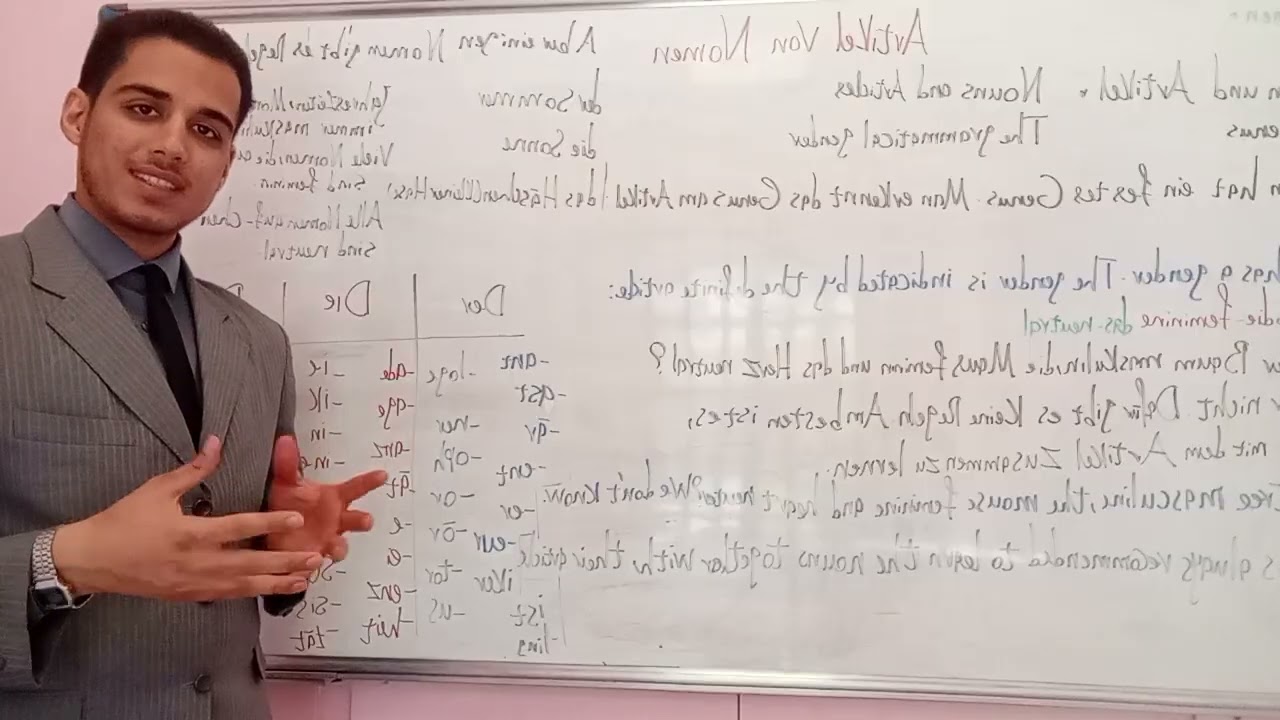 Artikel Von Nomen
n und Artikel * Nouns and Articles
enus The grammatical gender
n hat ein festes Genus. Man erkennt das Genus am Artikel
has a gender. The gender is indicated by the definite article:
die-feminine das-neutral
r Baum maskulin, die Maus feminin und das Harz neutral?
nicht. Dafür gibt es Keine Regeln. Am besten ist es,
mit dem Artikel zusammen zu lernen.
ree masculine, the mouse feminine and heart We don't know.
s always recommended to learn the nouns together with their article
Aber einigen Nomen gibt es Regel
der Sommer
die Sonne
das Häschen (kleiner Hase)
immer maskulin
Viele Nomen, die
sind feminin
Alle Nomen auf -chen
sind neutral
Der
-ant -loge
-ast
-är -ner
-ent -oph
-er -or
-eur -ör
iker -tor
ist -us
-ling
Die
-ade -ie
-age -ik
-anz -in
-ät
-e
-ei
-enz -sis
-heit -tät